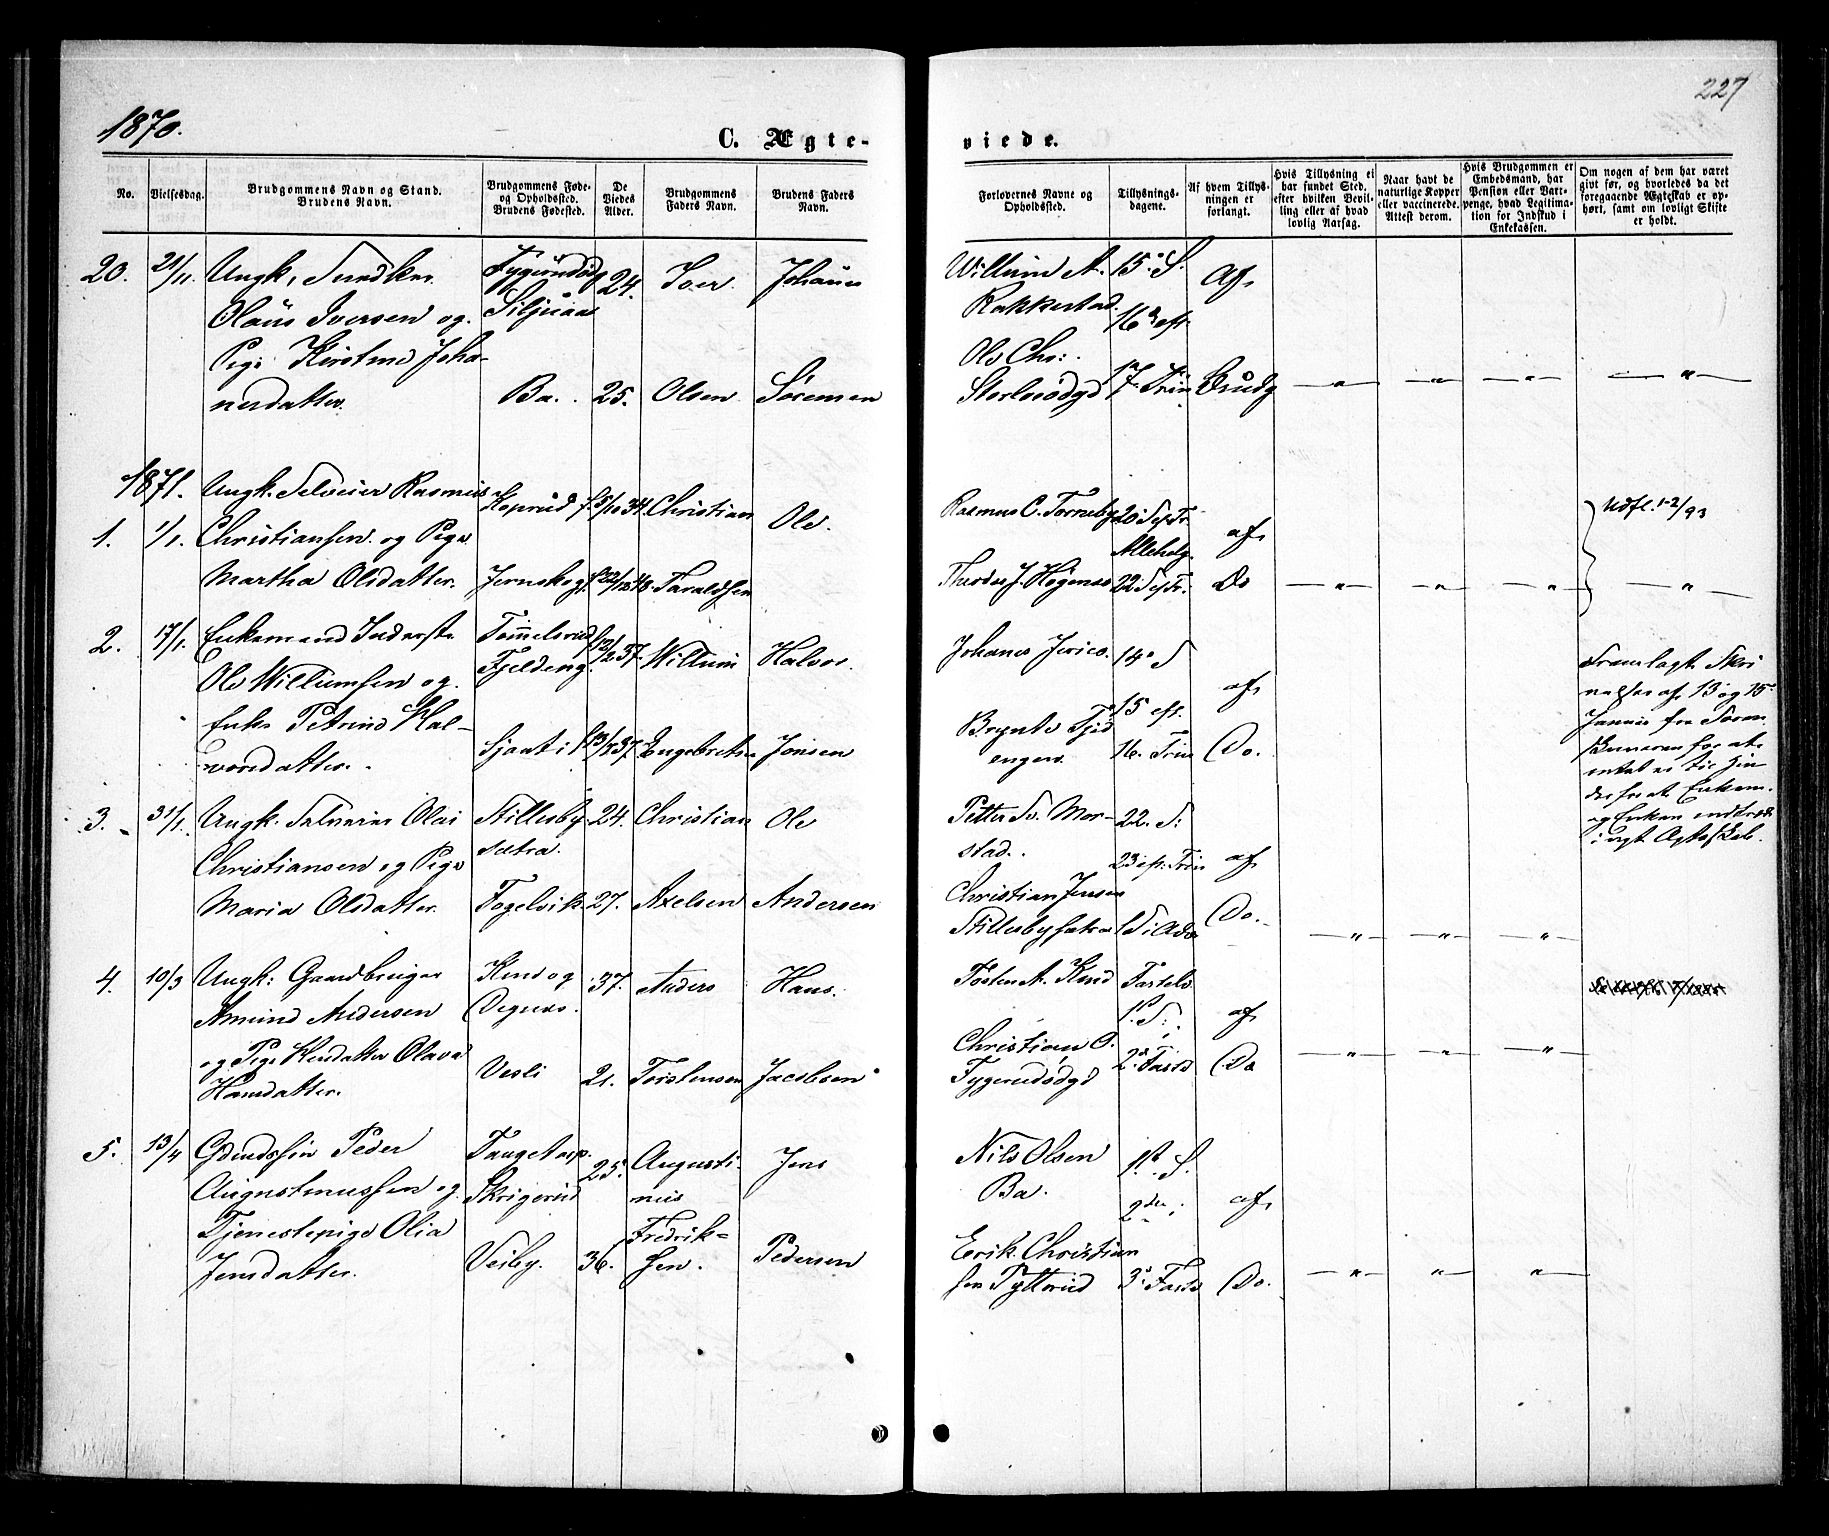 1870.
C. Ægte-
viede.
227
No.
Vielsesdag.
Brudgommens Navn og Stand.
Brudens Navn.
Brudgommens Føde-
og Opholdssted.
Brudens Fødested.
De
Viedes
Alder.
Brudgommens
Faders Navn.
Brudens Faders
Navn.
Forlovernes Navne og
Opholdssted.
Tillysnings-
dagene.
Af hvem Tillys-
ningen er
forlangt.
Hvis Tillysning ei
har fundet Sted,
efter hvilken Bevil-
ling eller af hvad
lovlig Aarsag.
Naar havt de
naturlige Kopper
eller vaccinerede.
Attest derom.
Hvis Brudgommen er
Embedsmand, har
Pension eller Vart-
penge, hvad Legitima-
tion for Indskud i
Enkekassen.
Om nogen af dem har været
givt før, og hvorledes da det
foregaaende Ægteskab er op-
hørt, samt om lovligt Skifte
er holdt.
20. 21/11. Ungk.
Olaus Iversen og
Pige Kirstine Joha-
nesdatter.
Ba.
24.
25.
Iver
Olsen
Johanes
Sørensen
Willum A.
Rakkestad.
Ole Chr:
15. S.
16 eft.
17 Trin
Af
Brudg
— " — — " — — " — — " —
1871.
1. 1/1. Ungk. Rasmus
Christiansen og Pige
Martha Olsdatter.
Koprud
Jernskog
34.
Christian
Ole
Taraldsen
Rasmus C. Torneby
Høgenæs
Alleholg.
22 S e Tr.
af
Do
— " — — " — — " — — " —
Udfl. 1-2/93
2. 17/1. Enkemand Inderst
Ole Willumsen og
Enke Petrine Hal-
vorsdatter.
Tømmelsrud
Fjeldeng
37.
37.
Willum
Engebretsen
Halvor
Jonsen
Johanes Jerico.
14. S
15 eft.
16. Trin
af
Do.
Fremlagt Skri
velser af 13 og 15
Januar fra Soren
skriveren for at
intet er til Hin
der for at Enkem.
og Enken indtræder
i nyt Ægteskab.
3. 31/1. Ungk. Olai
Christiansen og Pige
Maria Olsdatter.
Stillesby
sætra.
Fogelvik
24.
27.
Christian
Axelsen
Ole
Andersen
Petter Sv. Mor-
stad.
Christian Jensen
Stillesbysætra
22. S:
23 ef: Trin
1 S i Adv
af
Do.
— " — — " — — " —
4. 10/3 Ungk: Gaardbruger
Amund Andersen
og Pige Olava
Hansdatter.
Kind og
Vesli
37.
21.
Anders
Torstensen
Hans.
Jacobsen
Tosten A. Kind
Christian O.
Fastel.
1. S.
2. Fast
af
Do
— " — — " — — " —
5. 13/4 Peder
Augustinussen og
Tjenestepige Olia
Jensdatter.
Skrigerud
Visby.
25.
36.
Augusti-
nus
Fredrik-
sen.
Jens
Pedersen
Nils Olsen
Ba.
Erik Christian
sen Pytterud
1st. S.
2den
3. Faste
af
Do.
— " — — " — — " —